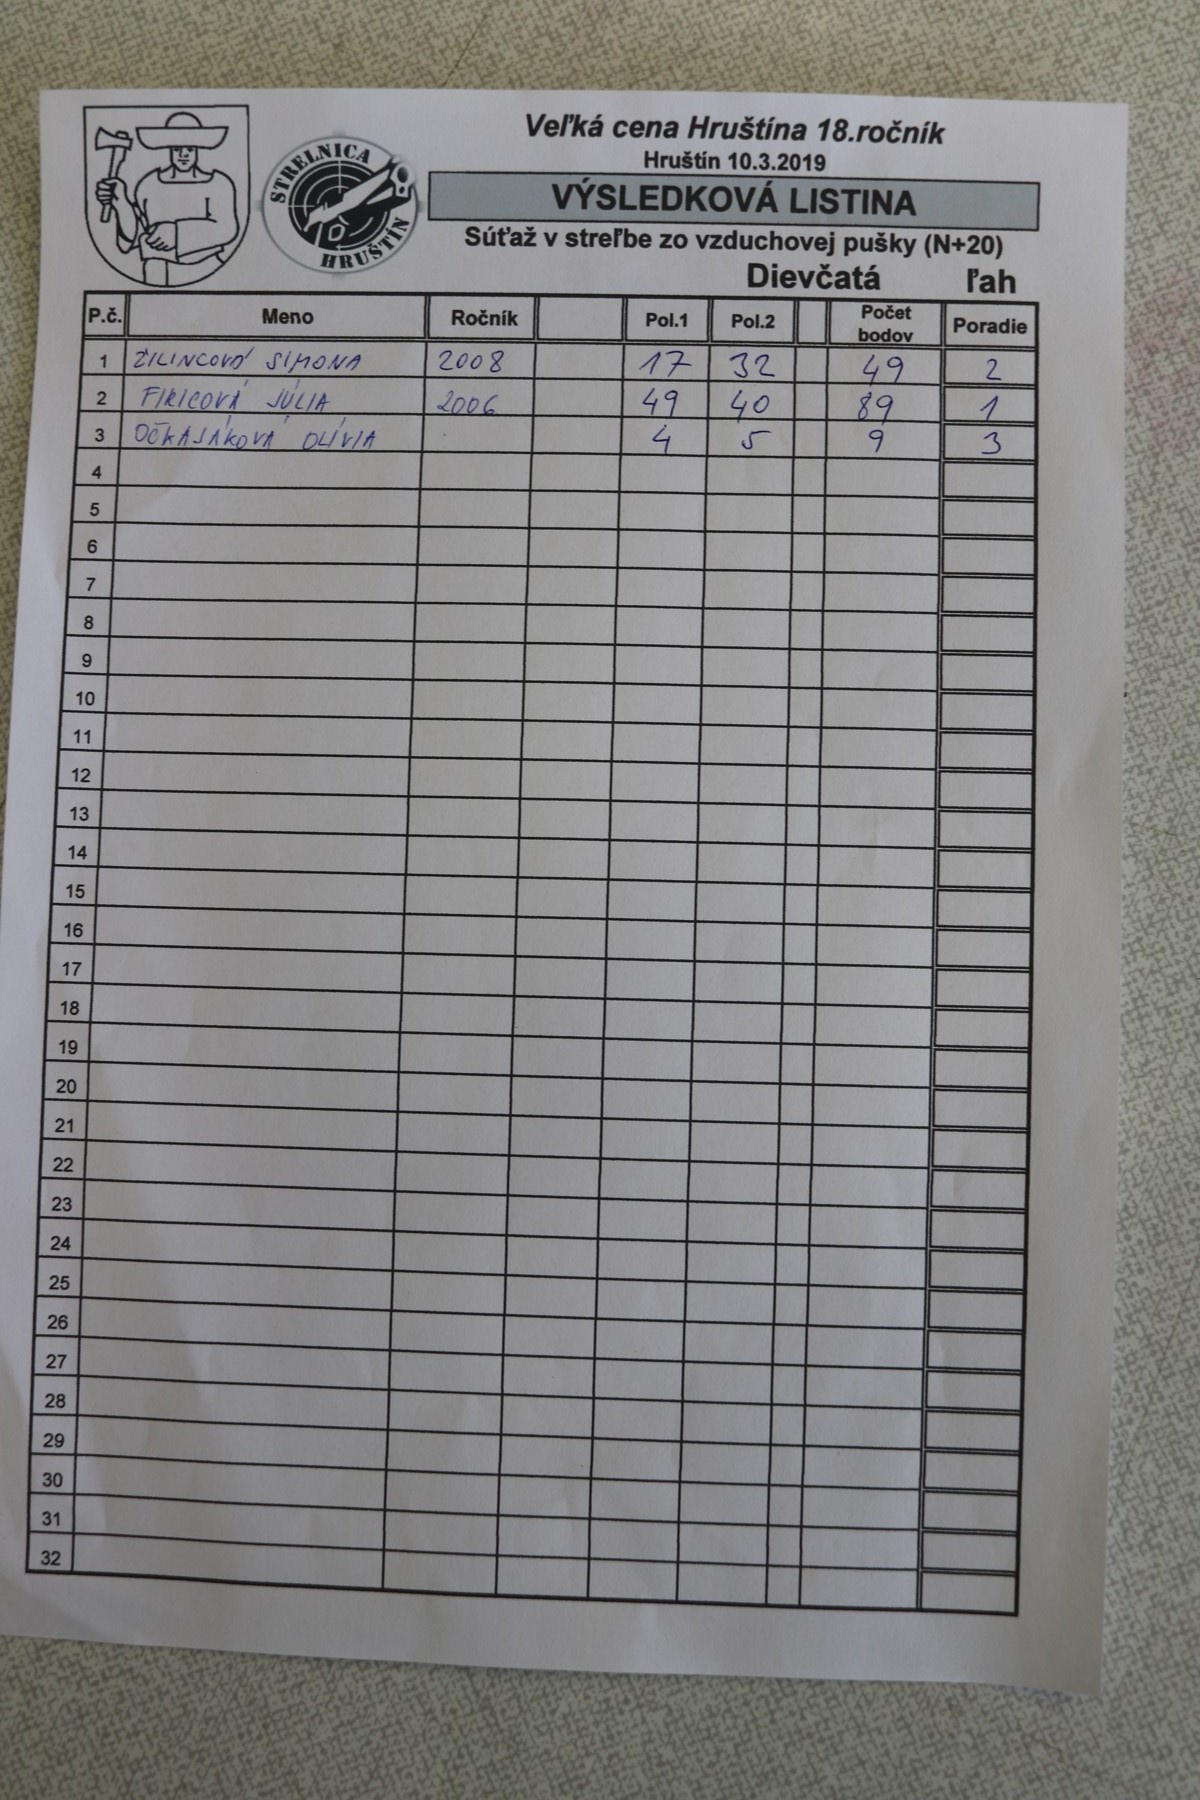 Veľká cena Hruštína 18.ročník
Hruštín 10.3.2019
STRELNICA
HRUŠTÍN
VÝSLEDKOVÁ LISTINA
Súťaž v streľbe zo vzduchovej pušky (N+20)
Dievčatá ľah
P.č. Meno Ročník Pol.1 Pol.2 Počet bodov Poradie
1 ŽILINCOVÁ SIMONA 2008 17 32 49 2
2 FIRICOVÁ JÚLIA 2006 49 40 89 1
3 OČKAJÁKOVÁ OLÍVIA 4 5 9 3
4
5
6
7
8
9
10
11
12
13
14
15
16
17
18
19
20
21
22
23
24
25
26
27
28
29
30
31
32